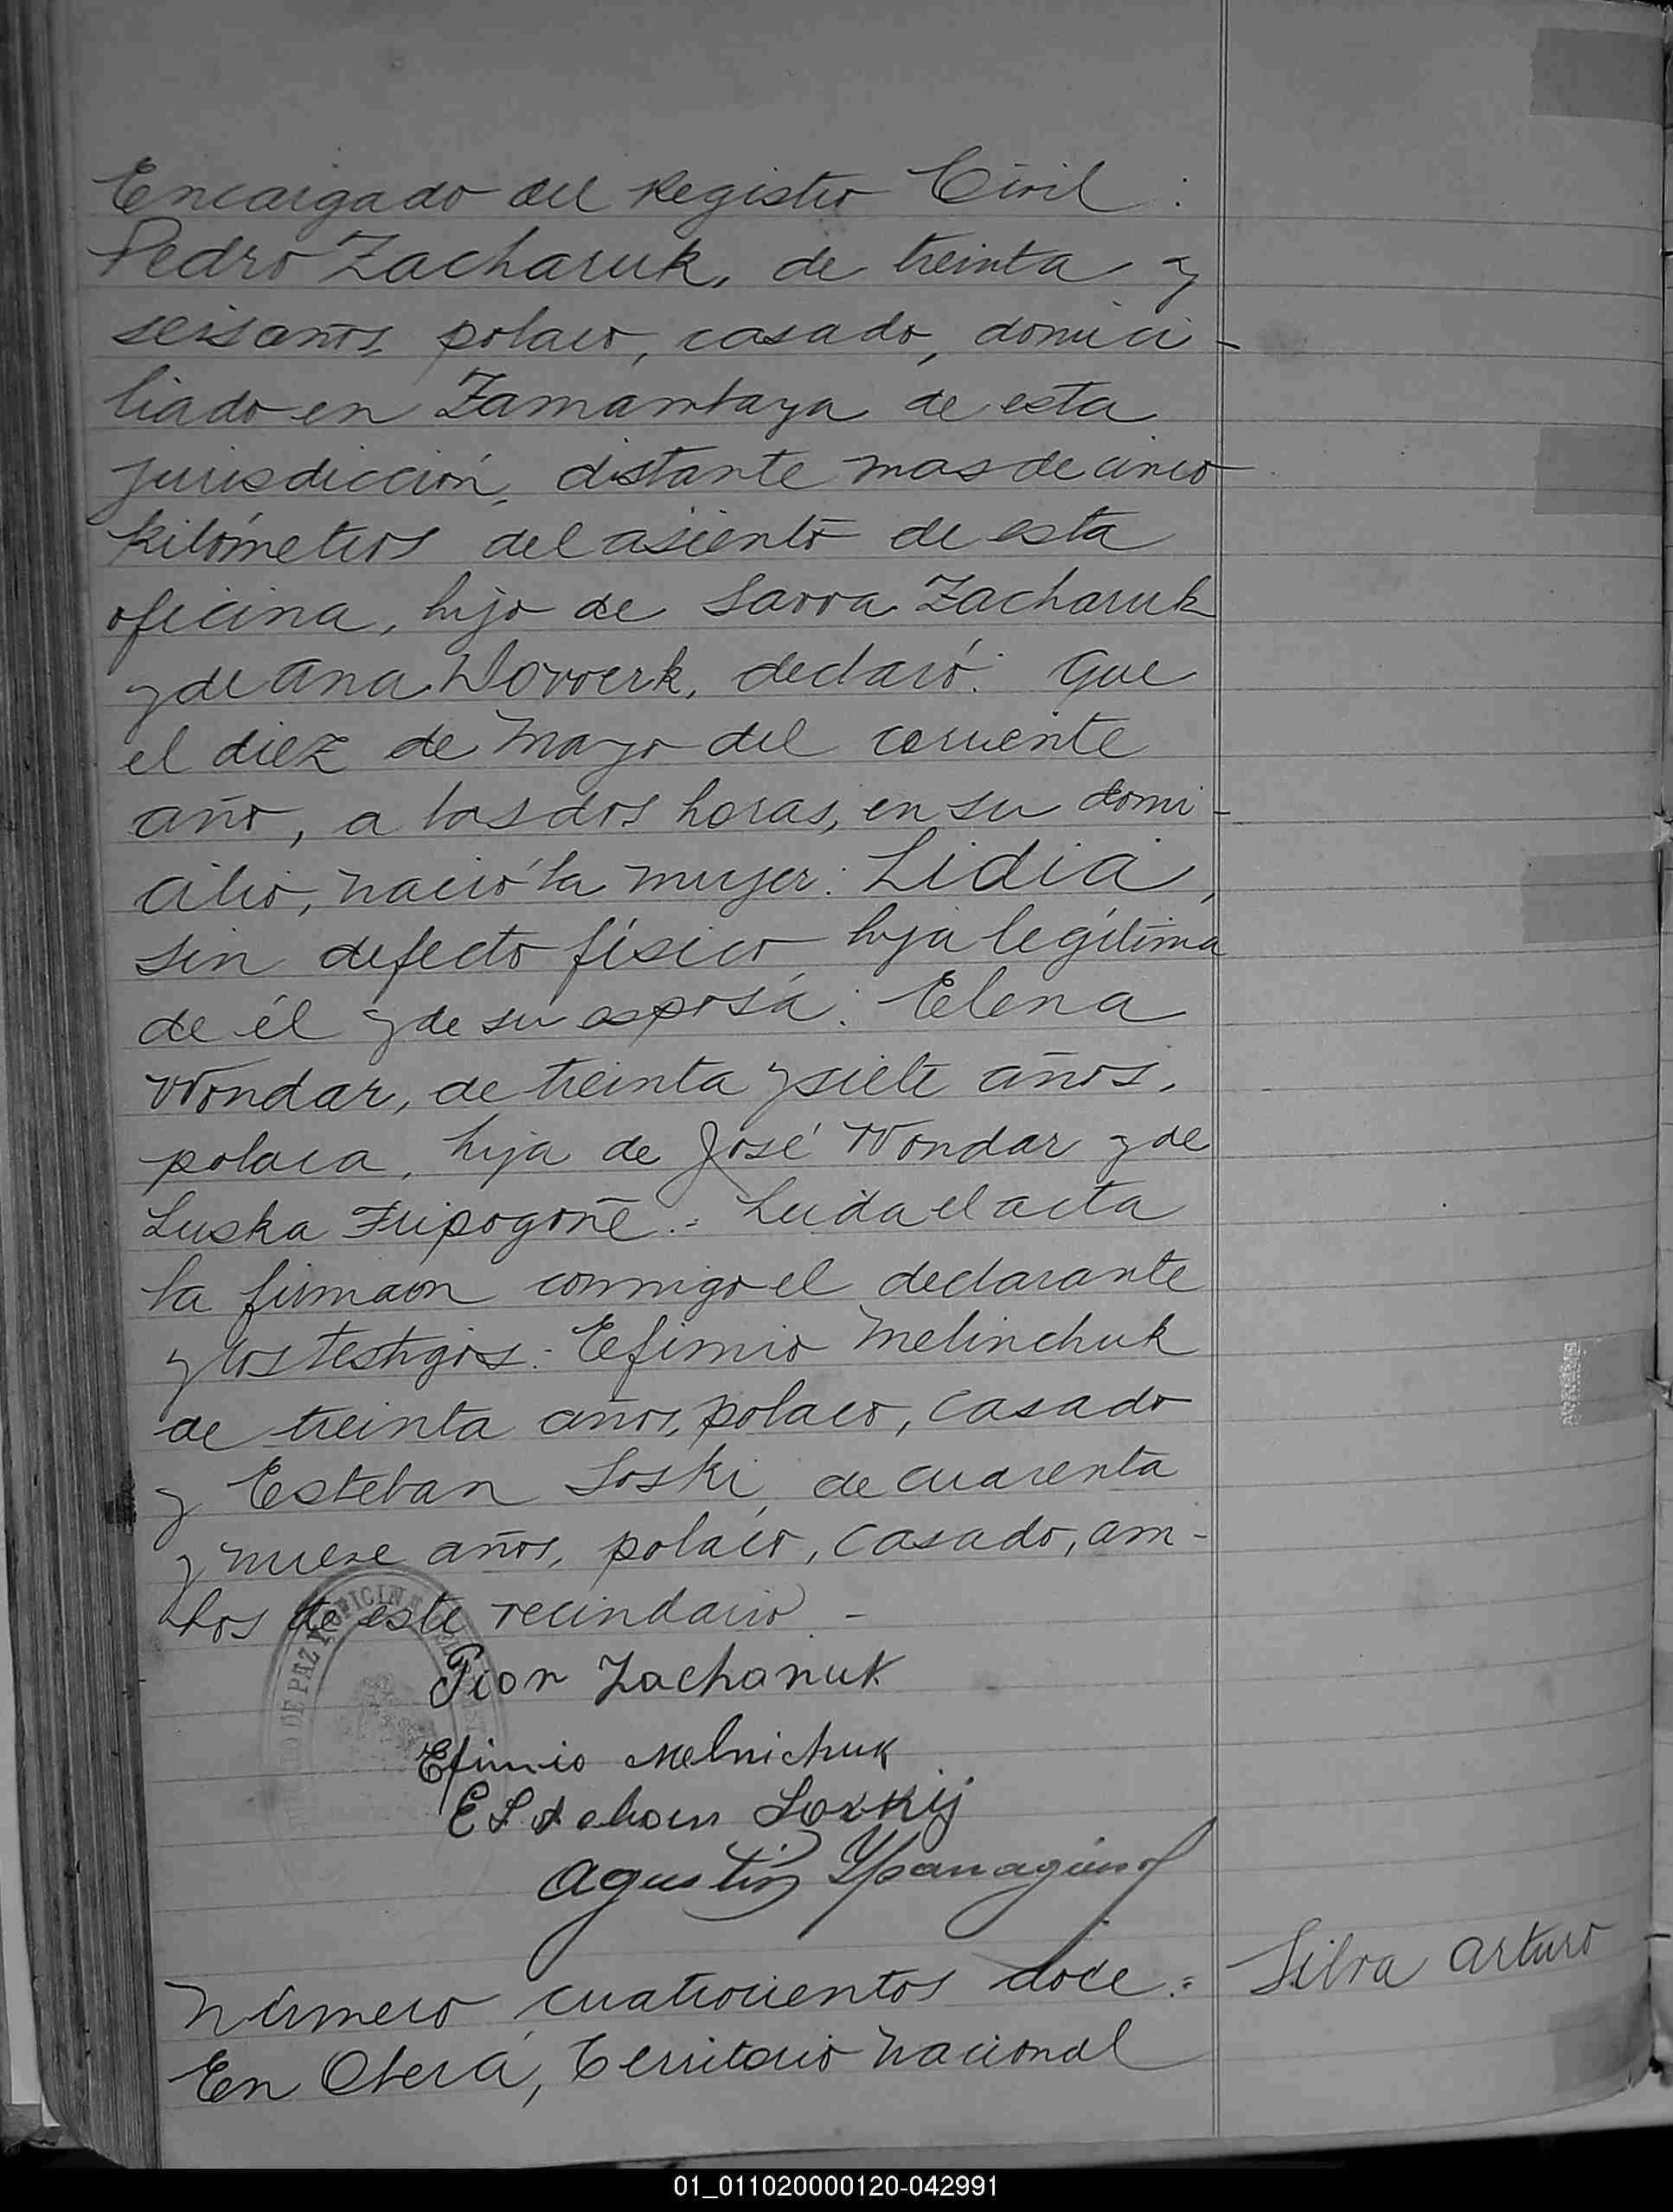 Encargado del Registro Civil:
Pedro Zacharuk, de treinta y
seis años, polaco, casado, domici-
liado en Zamambaya de esta
jurisdicción, distante mas de cinco
kilómetros del asiento de esta
oficina, hijo de Savva Zacharuk
y de Ana Wowerk, declaró: Que
el diez de Mayo del corriente
año, a las dos horas, en su domi-
cilio, nació la mujer: Lidia,
sin defecto físico, hija legítima
de él y de su esposa: Elena
Wondar, de treinta y siete años,
polaca, hija de José Wondar y de
Luska Fripogoñe.= Leida el acta
la firmaon conmigo el declarante
y los testigos: Eefimio Melinchuk
de treinta años, polaco, casado
y Esteban Soski, de cuarenta
y nueve años, polaco, casado, am-
bos de este vecindario -
Pion Zachanuk
Efimio Melnichuk
Esteban Soskij
Agustin
Número cuatrocientos doce.=
Silva Arturo
En Oberá, Territorio Nacional
DE PAZ OFICINA
01_011020000120-042991